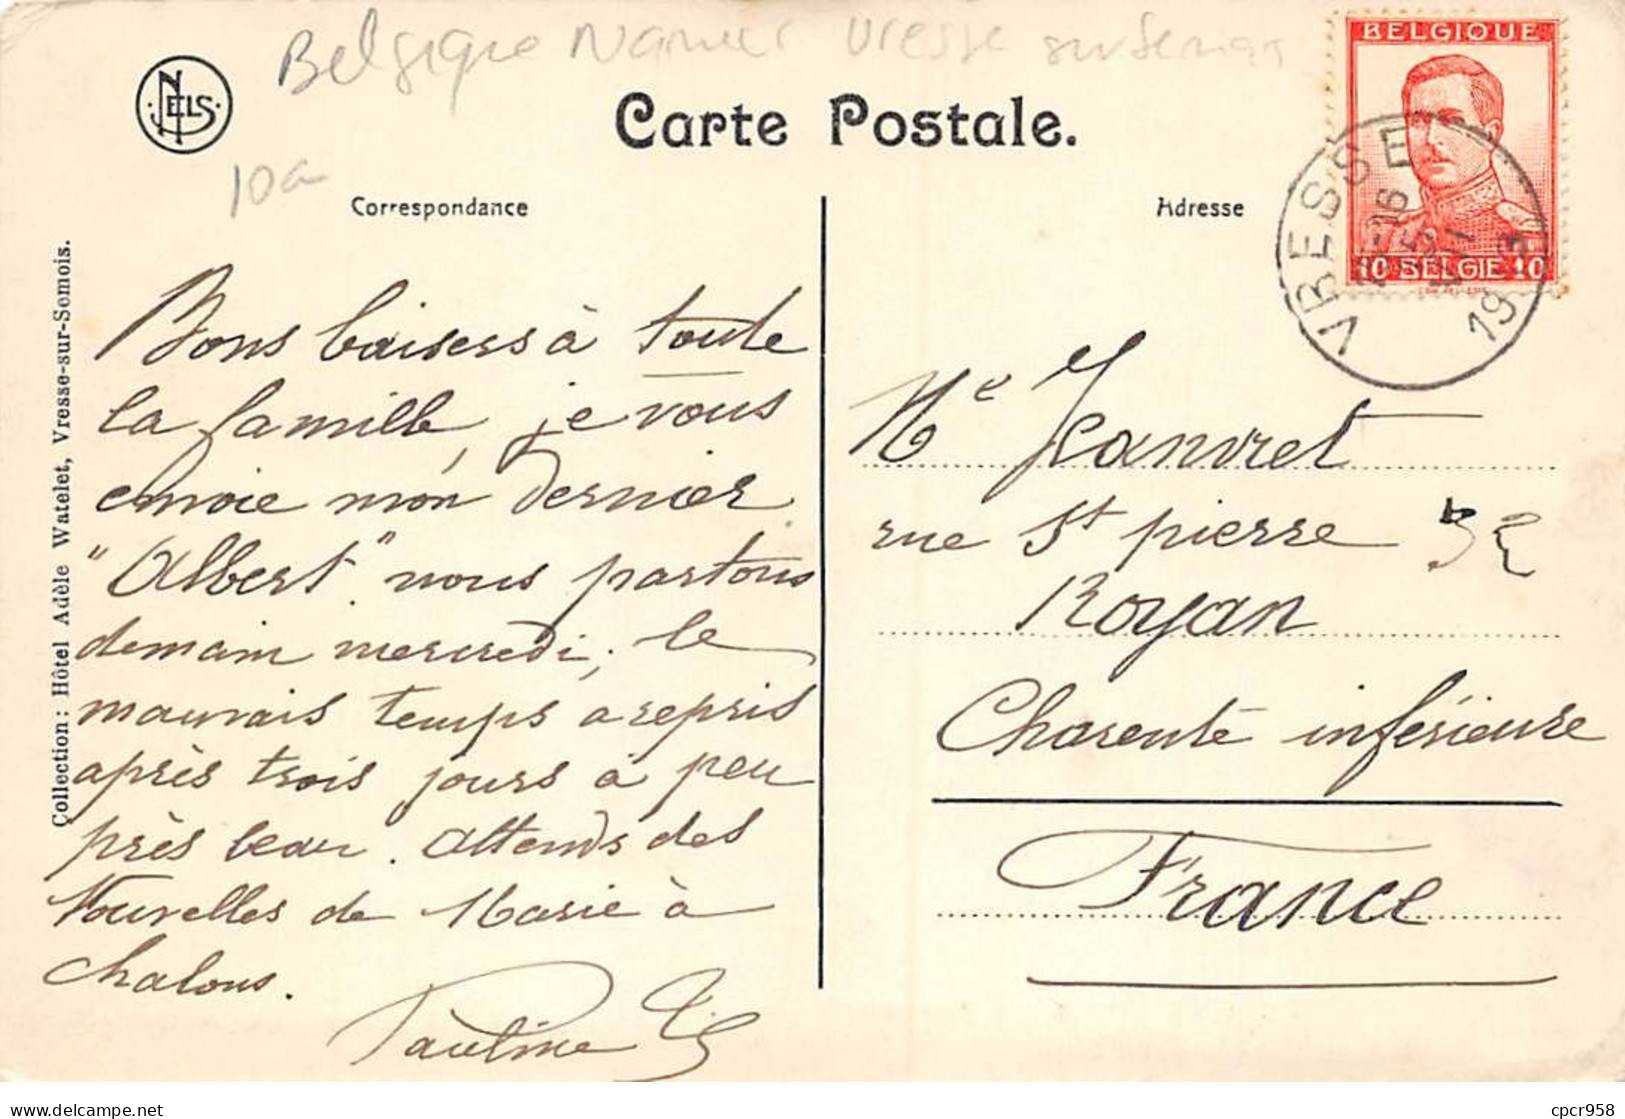 Belgique Namur Vresse sur Semois
BELGIQUE
NELS
Carte Postale.
10a
Correspondance
Adresse
VRESSE
16
191
10 BELGIE 10
Collection : Hôtel Adèle Watelet, Vresse-sur-Semois.
Bons baisers à toute
la famille, je vous
envoie mon dernier
"Albert". nous partons
demain mercredi, le
mauvais temps a repris
après trois jours à peu
près beau. Attends des
Nouvelles de Marie à
chalons.
Pauline
Me Jeanvret
rue St pierre 52
Royan
Charente inférieure
France
delcampe.net
cpcr958